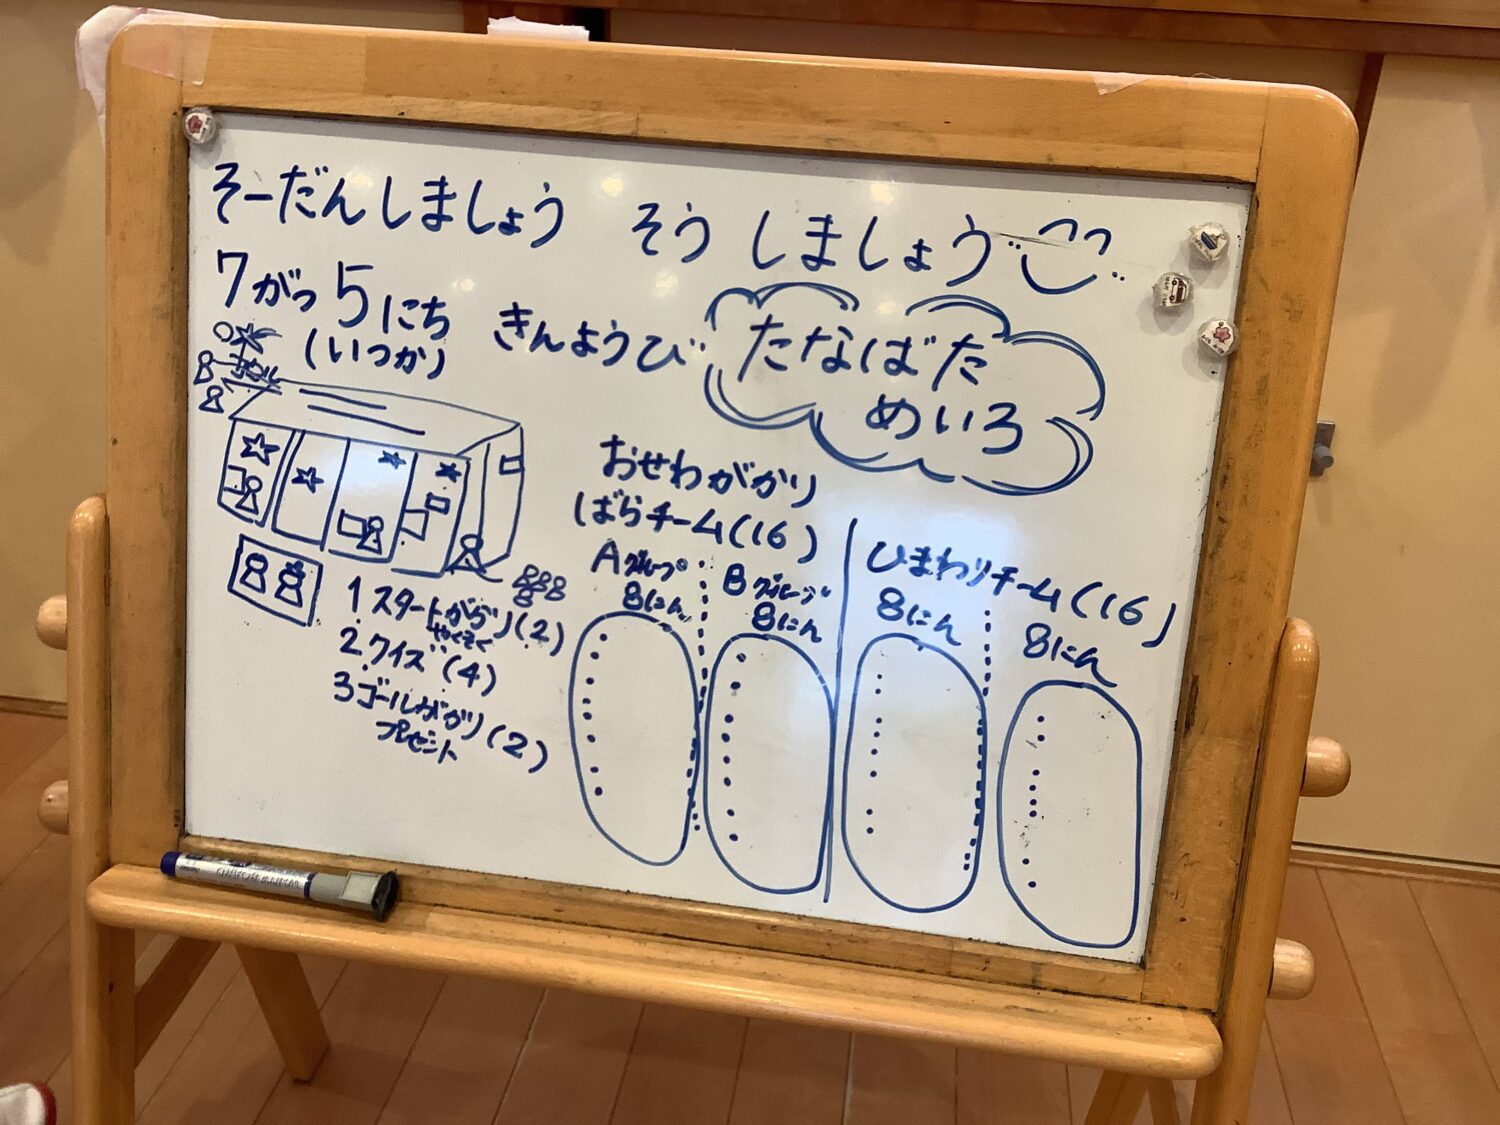 そーだんしましょう そうしましょう
7がつ5にち きんようび
(いつか)
たなばた
めいろ
ゴール
おせわがかり
ばらチーム(16)
Aグループ
8にん
Bグループ
8にん
ひまわりチーム(16)
8にん
8にん
1 スタートがかり(2)
やくそく
2 クイズ(4)
3 ゴールがかり(2)
プレゼント